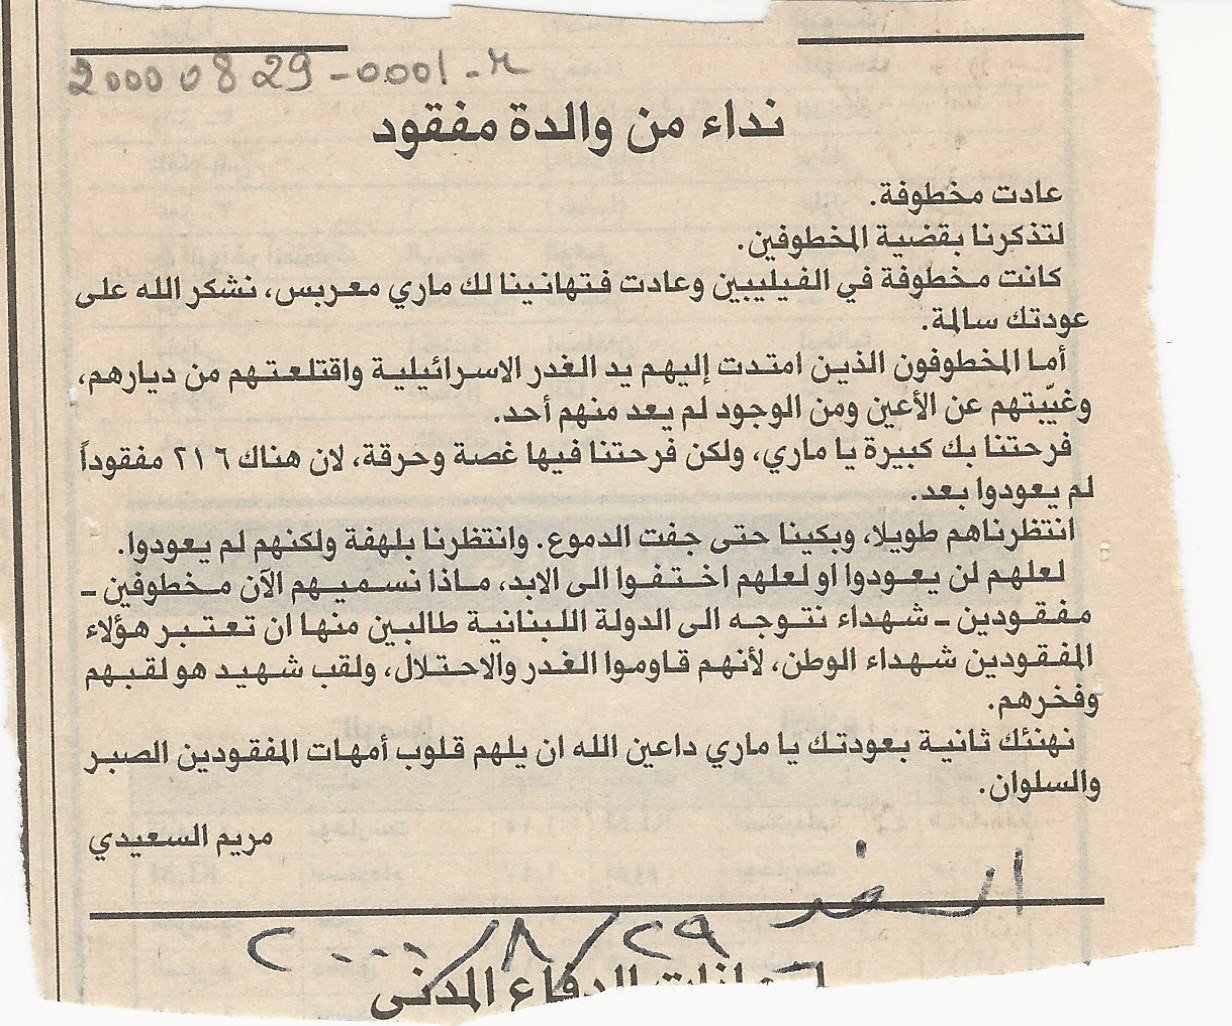 20000829-0001-r
نداء من والدة مفقود
عادت مخطوفة.
لتذكرنا بقضية المخطوفين.
كانت مخطوفة في الفيليبين وعادت فتهانينا لك ماري معربس، نشكر الله على
عودتك سالمة.
أما المخطوفون الذين امتدت إليهم يد الغدر الاسرائيلية واقتلعتهم من ديارهم،
وغيّبتهم عن الأعين ومن الوجود لم يعد منهم أحد.
فرحتنا بك كبيرة يا ماري، ولكن فرحتنا فيها غصة وحرقة، لان هناك ٢١٦ مفقوداً
لم يعودوا بعد.
انتظرناهم طويلا، وبكينا حتى جفت الدموع. وانتظرنا بلهفة ولكنهم لم يعودوا.
لعلهم لن يعودوا او لعلهم اختفوا الى الابد، ماذا نسميهم الآن مخطوفين ـ
مفقودين ـ شهداء نتوجه الى الدولة اللبنانية طالبين منها ان تعتبر هؤلاء
المفقودين شهداء الوطن، لأنهم قاوموا الغدر والاحتلال، ولقب شهيد هو لقبهم
وفخرهم.
نهنئك ثانية بعودتك يا ماري داعين الله ان يلهم قلوب أمهات المفقودين الصبر
والسلوان.
مريم السعيدي
السفير ٢٩/٨/٢٠٠٠
الدفاع المدني